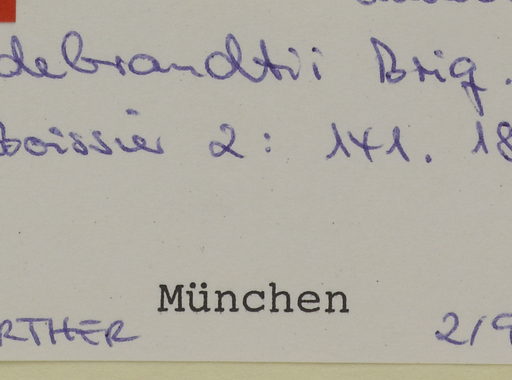 debrandtii Briq.
boissier 2: 141. 18
München
RTHER 2/9